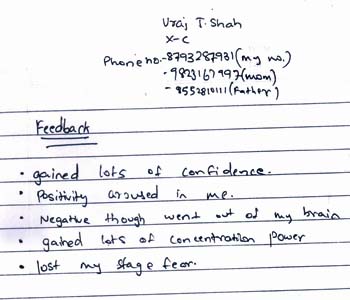 Uraj T. Shah
X-C
Phone no.- 8793287931 (my no.)
- 9823167997 (mom)
- 9552810111 (Father)
Feedback
• gained lots of confidence.
• Positivity aroused in me.
• Negative though went out of my brain
• gained lots of concentration power
• lost my stage fear.